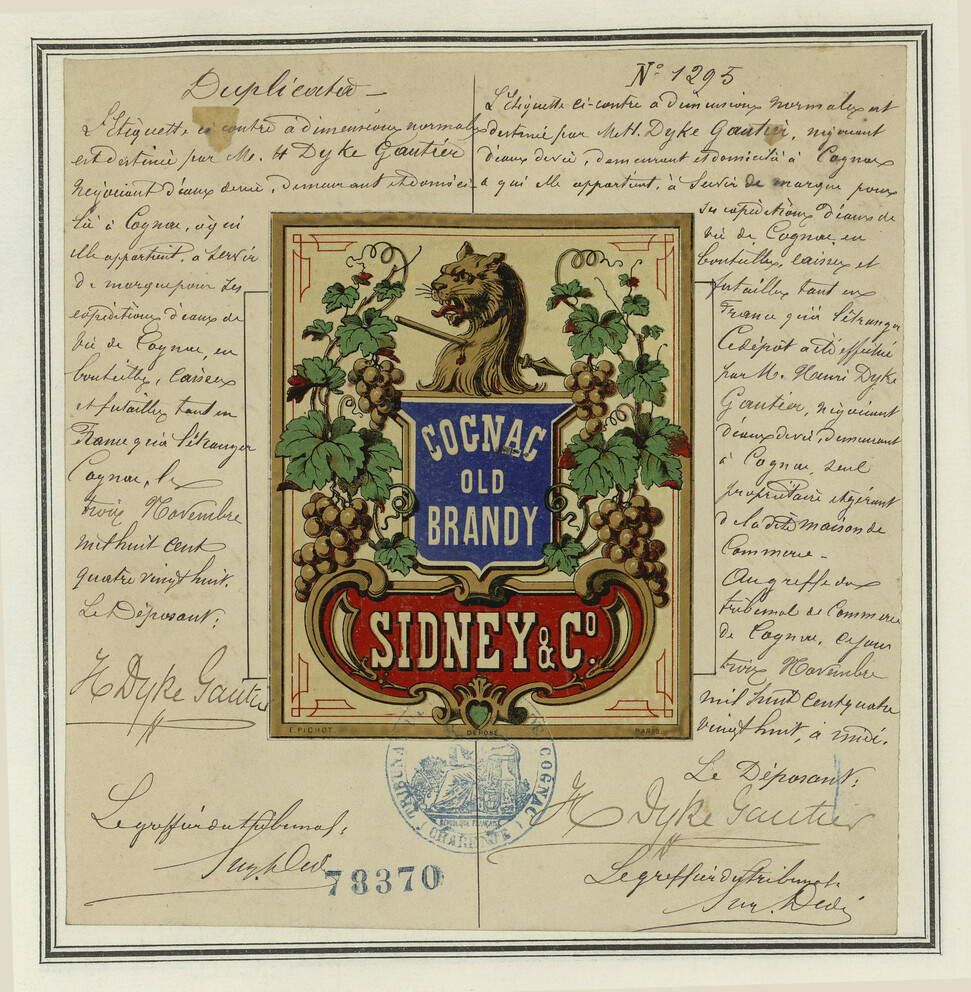 Duplicata
L'étiquette ci contre à dimensions normales
est destinée par Mr. H Dyke Gautier
Négociant d'eaux de vie, demeurant et domici-
lié à Cognac, à qui
elle appartient, à servir
de marque pour ses
expéditions d'eaux de
vie de Cognac, en
bouteilles, caisses
et futailles tant en
France qu'à l'étranger
Cognac, le
trois Novembre
mil huit cent
quatre vingt huit.
Le Déposant:
H Dyke Gautier
Le greffier du tribunal:
78370
N° 1295
L'étiquette ci-contre à dimensions normales est
destinée par Mr H. Dyke Gautier, négociant
d'eaux de vie, demeurant et domicilié à Cognac
à qui elle appartient, à servir de marque pour
ses expéditions d'eaux de
vie de Cognac, en
bouteilles, caisses et
futailles tant en
France qu'à l'étranger
Ce dépôt a été effectué
par M. Henri Dyke
Gautier, négociant
d'eaux de vie, demeurant
à Cognac, seul
propriétaire et gérant
de la dite maison de
Commerce-
Au greffe du
tribunal de Commerce
de Cognac, ce jour
trois Novembre
mil huit cent quatre
vingt huit, à midi.
Le Déposant:
H Dyke Gautier
Le greffier du tribunal:
COGNAC
OLD
BRANDY
SIDNEY & Co.
E. PICHOT
DÉPOSÉ
PARIS
COGNAC
RÉPUBLIQUE FRANÇAISE
(CHARENTE)